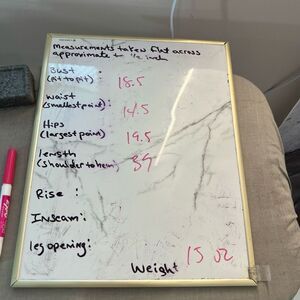 Measurements taken flat across
approximate +- 1/2 inch
Bust :
(Pit to pit) 18.5
Waist :
(smallest point) 14.5
Hips :
(largest point) 19.5
length :
(shoulder to hem) 39
Rise :
Inseam :
leg opening :
Weight 15 oz